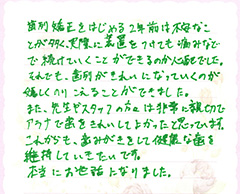 歯列矯正をはじめる2年前は不安なこ
とが多く、実際に装置をつけても痛みなど
で続けていくことができるのか心配でした。
それでも、歯列がきれいになっていくのが
嬉しくのりこえることができました。
また、先生やスタッフの方々は非常に親切で
アクアで歯をきれいしてよかったと思っています。
これからも、歯みがきをして健康な歯を
維持していきたいです。
本当にお世話になりました。